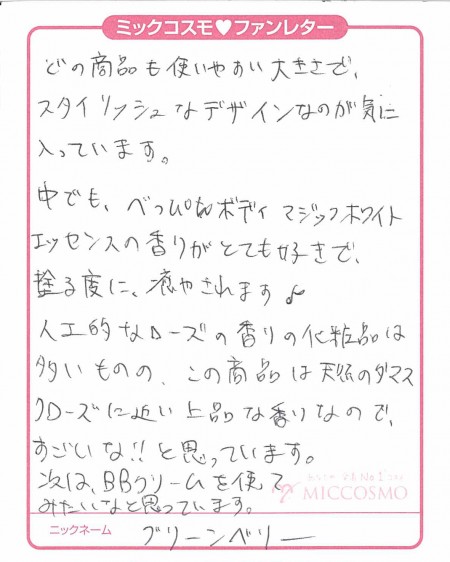 ミックコスモ♥ファンレター
どの商品も使いやすい大きさで、
スタイリッシュなデザインなのが気に
入っています。
中でも、べっぴんボディ マジックホワイト
エッセンスの香りがとても好きで、
塗る度に、癒やされます♪
人工的なローズの香りの化粧品は
多いものの、この商品は天然のダマス
クローズに近い上品な香りなので、
すごいな!!と思っています。
次は、BBクリームを使って
みたいなと思っています。
No.1
MICCOSMO
ニックネーム グリーンベリー